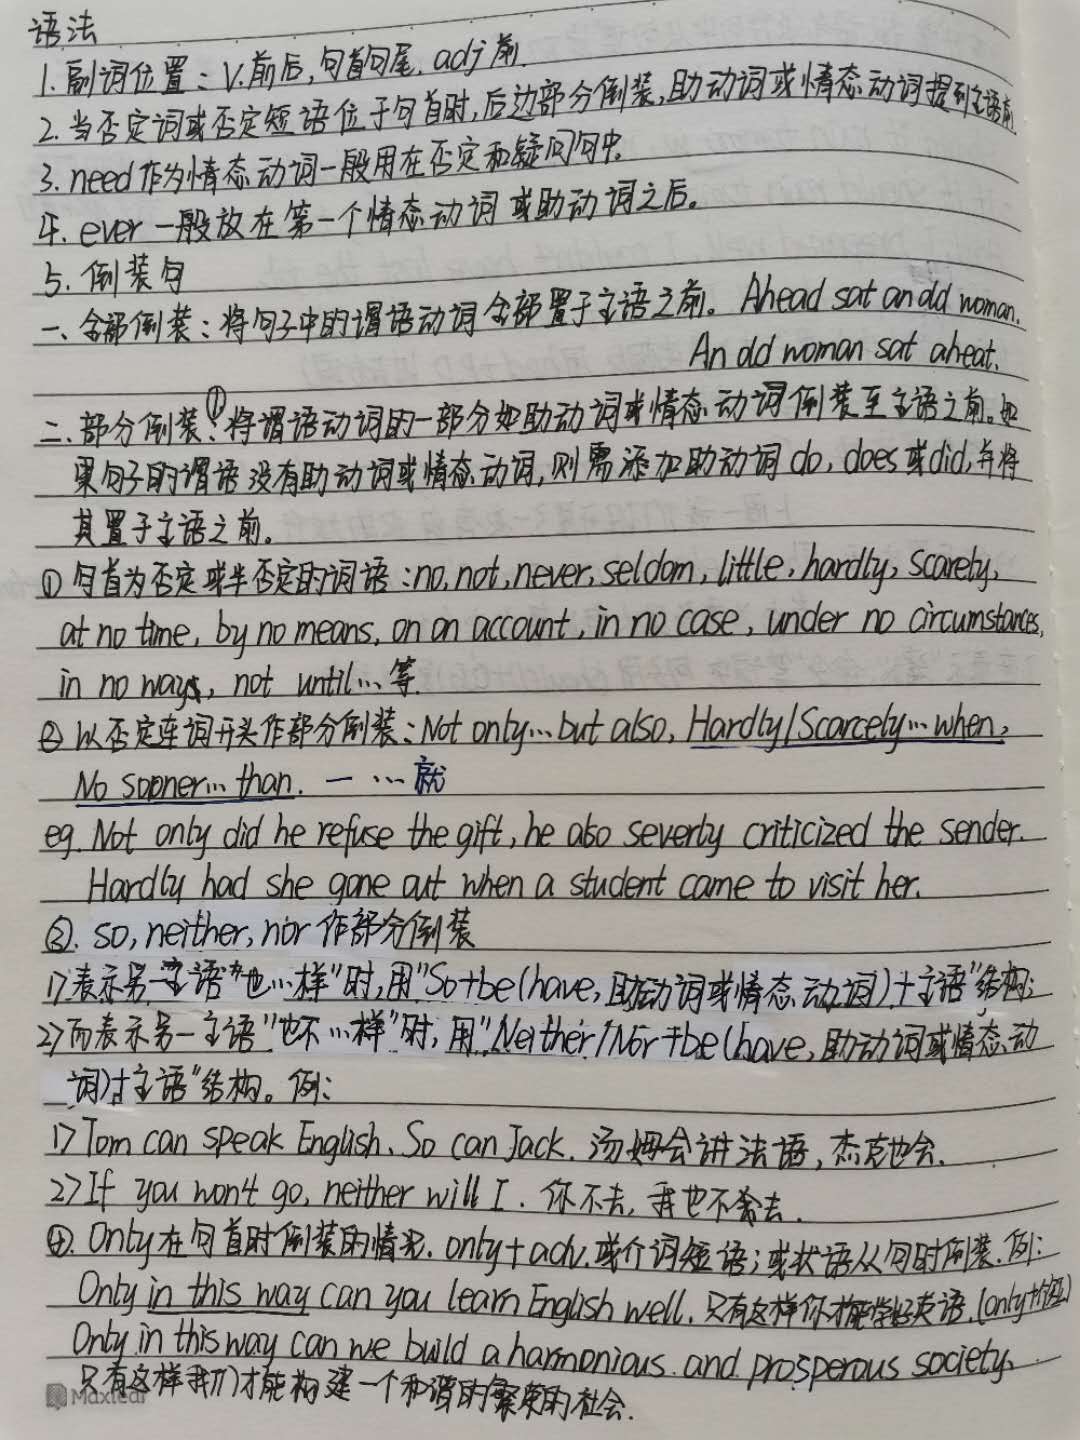 语法
1. 副词位置：V.前后，句首句尾，adj前.
2. 当否定词或否定短语位于句首时，后边部分倒装，助动词或情态动词提到主语前.
3. need作为情态动词一般用在否定和疑问句中.
4. ever 一般放在第一个情态动词或助动词之后。
5. 倒装句
一、全部倒装：将句子中的谓语动词全部置于主语之前。Ahead sat an old woman.
An old woman sat aheat.
二、部分倒装：①将谓语动词的一部分如助动词或情态动词倒装至主语之前。如
果句子的谓语没有助动词或情态动词，则需添加助动词do, does或did，并将
其置于主语之前。
① 句首为否定或半否定的词语：no, not, never, seldom, little, hardly, scarely,
at no time, by no means, on on account, in no case, under no circumstances,
in no ways, not until…等.
② 以否定连词开头作部分倒装：Not only…but also, Hardly/Scarcely…when,
No sooner… than. 一 … 就
eg. Not only did he refuse the gift, he also severty criticized the sender.
Hardly had she gone out when a student came to visit her.
③. so, neither, nor 作部分倒装
1>表示另一主语"也…样"时，用"So+be(have, 助动词或情态动词)+主语"结构；
2>而表示另一主语"也不…样"时，用"Neither/Nor+be(have, 助动词或情态动
词)+主语"结构。例：
1>Tom can speak English. So can Jack. 汤姆会讲法语，杰克也会.
2>If you won't go, neither will I. 你不去，我也不会去.
④. Only在句首时倒装的情况. only+adv. 或介词短语；或状语从句时倒装. 例：
Only in this way can you learn English well. 只有这样你才能学好英语. (only+介短)
Only in this way can we build a harmonious and prosperous society.
只有这样我们才能构建一个和谐的繁荣的社会.
Maxleaf